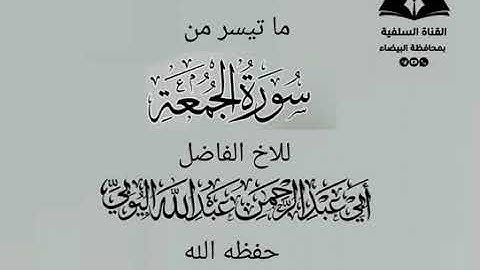 القناة السلفية
بمحافظة البيضاء
ما تيسر من
سُورَةُ الجُمُعَةِ
للاخ الفاضل
أبي عبد الرحمن عبد الله اليوبي
حفظه الله